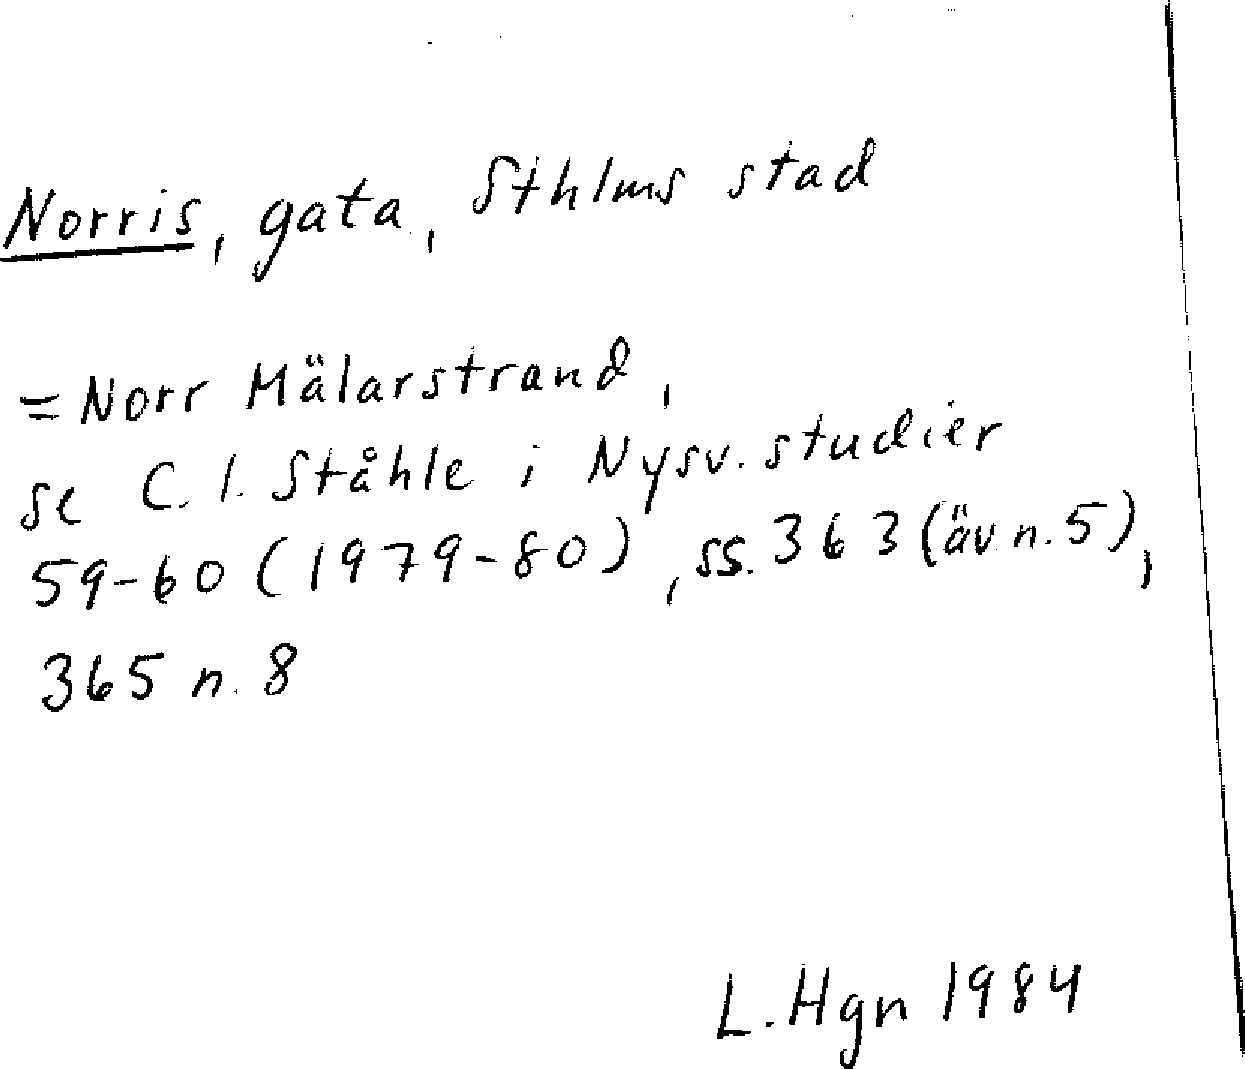 Norris, gata, Sthlms stad
= Norr Mälarstrand,
se C. I. Ståhle i Nysv. studier
59-60 (1979-80), ss. 363 (äv n. 5),
365 n. 8
L. Hgn 1984